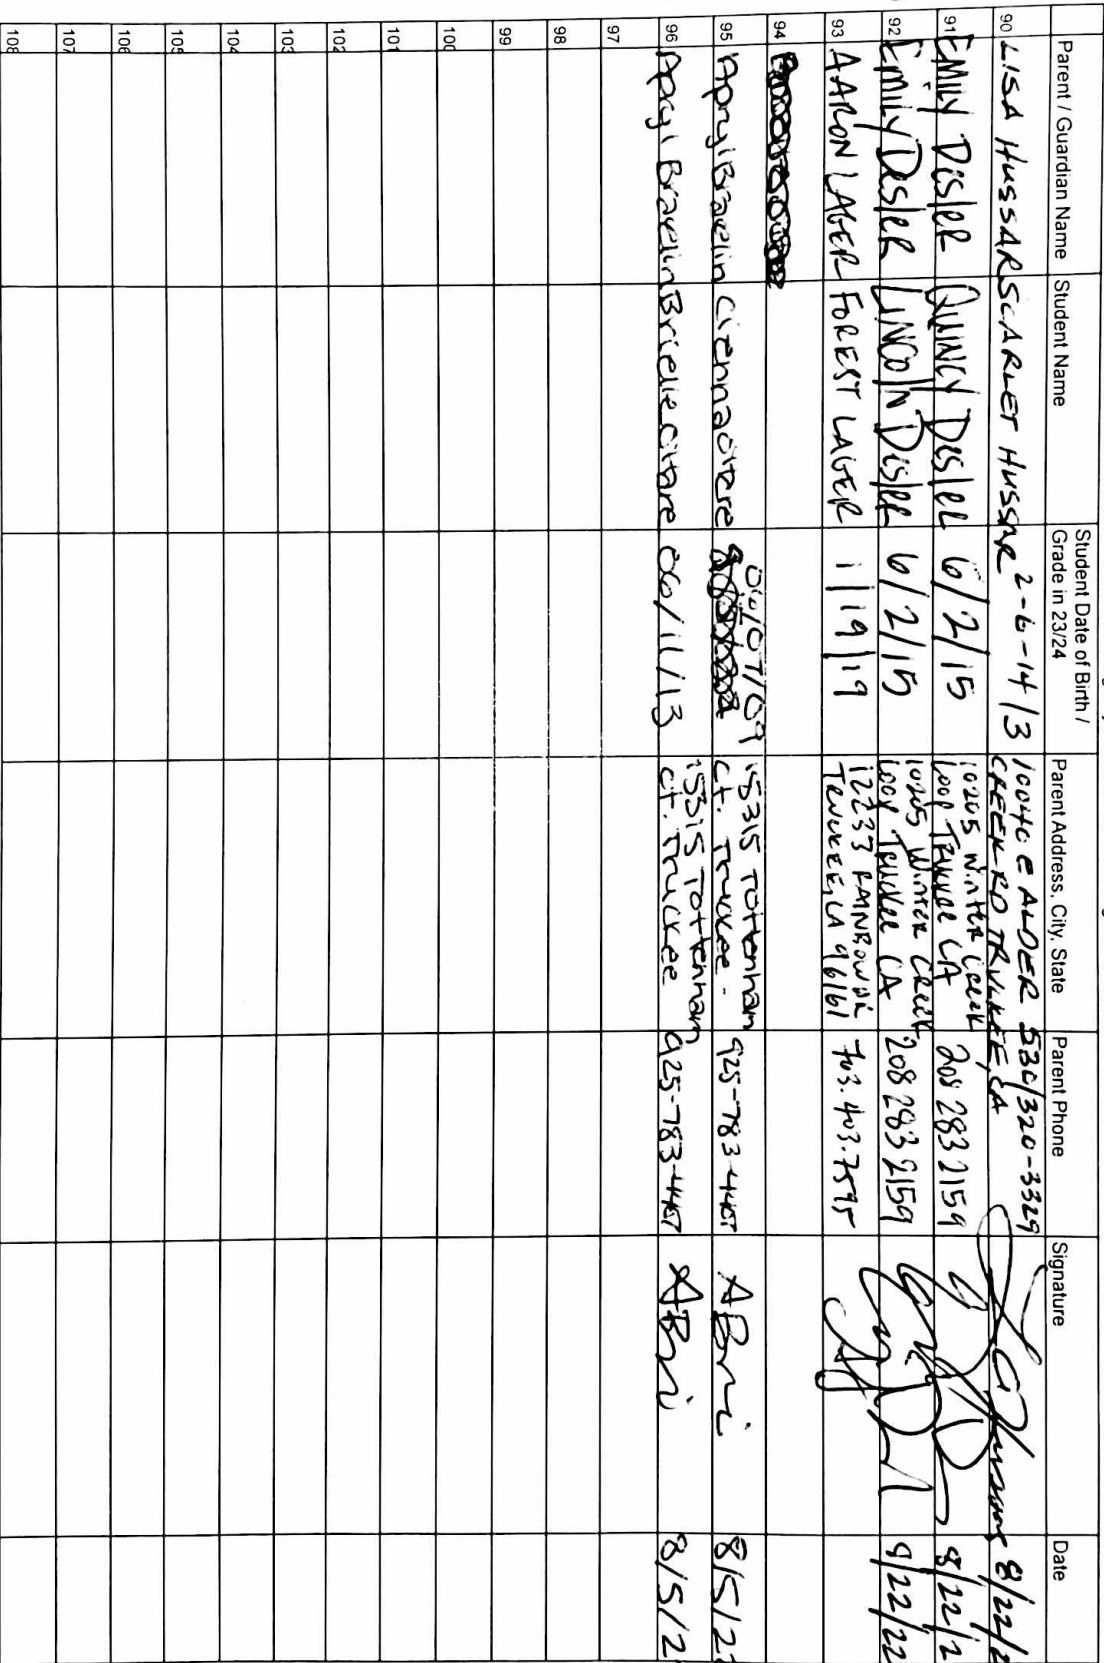 Parent / Guardian Name Student Name Student Date of Birth / Grade in 23/24 Parent Address, City, State Parent Phone Signature Date
90 LISA HUSSAR SCARLET HUSSAR 2-6-14/3 10040 E ALDER CREEK RD TRUCKEE, CA 530/320-3329 8/22/2
91 EMILY Disler QUINCY Disler 6/2/15 10205 Winter Creek Loop Truckee CA 208 283 2159 8/22/2
92 EMILY Disler LINCOLN Disler 6/2/15 10205 Winter Creek Loop Truckee CA 208 283 2159 8/22/22
93 AARON LAGER FOREST LAGER 1/19/19 12233 RAINBOW DR TRUCKEE, CA 96161 703.403.7595
94
95 06/07/09 15315 Tottenham Ct. Truckee - 925-783-4467 8/5/2
96 Brielle 06/11/13 15315 Tottenham Ct. Truckee 925-783-4467 8/5/2
97
98
99
100
101
102
103
104
105
106
107
108